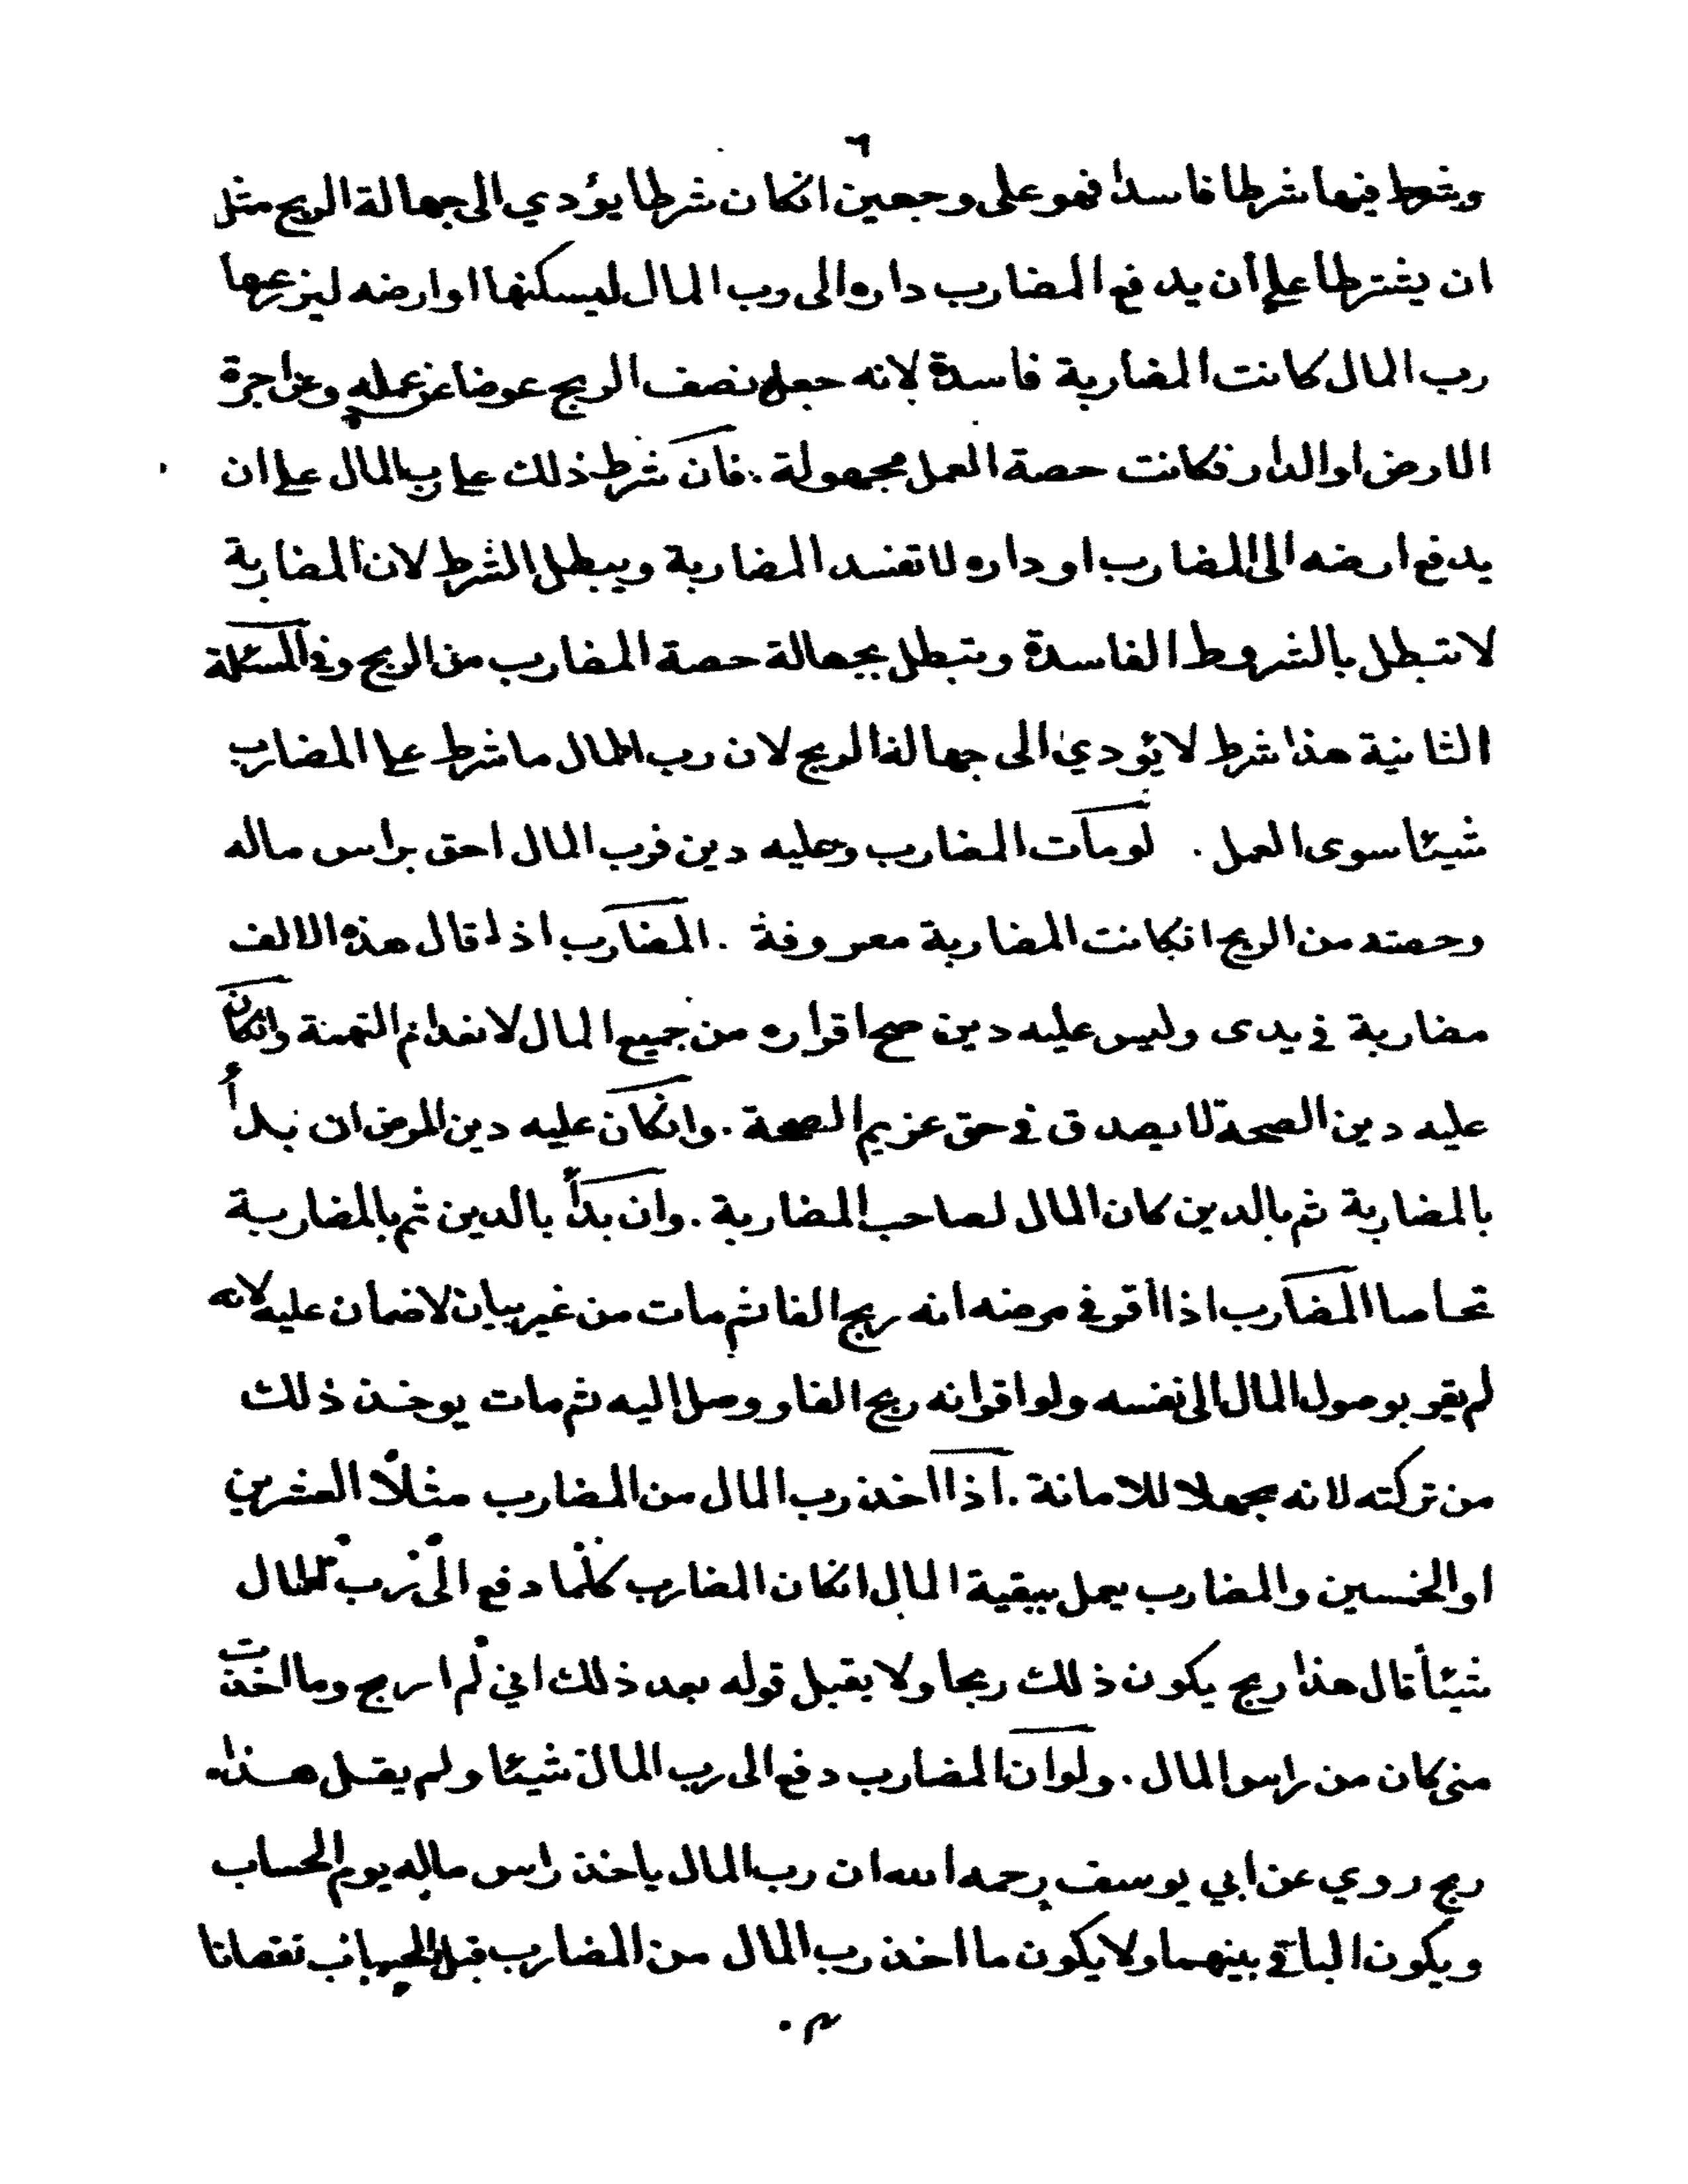 ٦
ويشترط فيها شرطا فاسدا فهو على وجهين انكان شرطا يؤدي الى جهالة الربح مثل
ان يشترطا على أن يدفع المضارب داره الى رب المال ليسكنها او ارضه ليزرعها
رب المال كانت المضاربة فاسدة لانه جعل نصف الربح عوضا عن عمله وعن اجرة
الارض او الدار فكانت حصة العمل مجهولة . فان شرط ذلك على رب المال على ان
يدفع ارضه الى المضارب او داره لا تفسد المضاربة ويبطل الشرط لان المضاربة
لا تبطل بالشروط الفاسدة وتبطل بجهالة حصة المضارب من الربح وفي المسئلة
الثانية هذا شرط لا يؤدي الى جهالة الربح لان رب المال ما شرط على المضارب
شيئا سوى العمل . لو مات المضارب وعليه دين فرب المال احق براس ماله
وحصته من الربح انكانت المضاربة معروفة . المضارب اذا قال هذه الالف
مضاربة في يدى وليس عليه دين صح اقراره من جميع المال لانعدام التهمة وانكان
عليه دين الصحة لا يصدق في حق غريم الصحة . وانكان عليه دين المرض ان بدأ
بالمضاربة ثم بالدين كان المال لصاحب المضاربة . وان بدأ بالدين ثم بالمضاربة
تحاصا المضارب اذا أقر في مرضه انه ربح الفا ثم مات من غير بيان لا ضمان عليه لانه
لم يقر بوصول المال الى نفسه ولو اقر انه ربح الفا ووصل اليه ثم مات يوخذ ذلك
من تركته لانه مجهلا للامانة . اذا اخذ رب المال من المضارب مثلاً العشرين
او الخمسين والمضارب يعمل ببقية المال انكان المضارب كلما دفع الى رب المال
شيئاً قال هذا ربح يكون ذلك ربحا ولا يقبل قوله بعد ذلك اني لم اربح وما اخذت
مني كان من راس المال . ولو ان المضارب دفع الى رب المال شيئا ولم يقل هذا
ربح روي عن ابي يوسف رحمه الله ان رب المال ياخذ راس ماله يوم الحساب
ويكون الباقي بينهما ولا يكون ما اخذ رب المال من المضارب قبل الحساب نقصانا